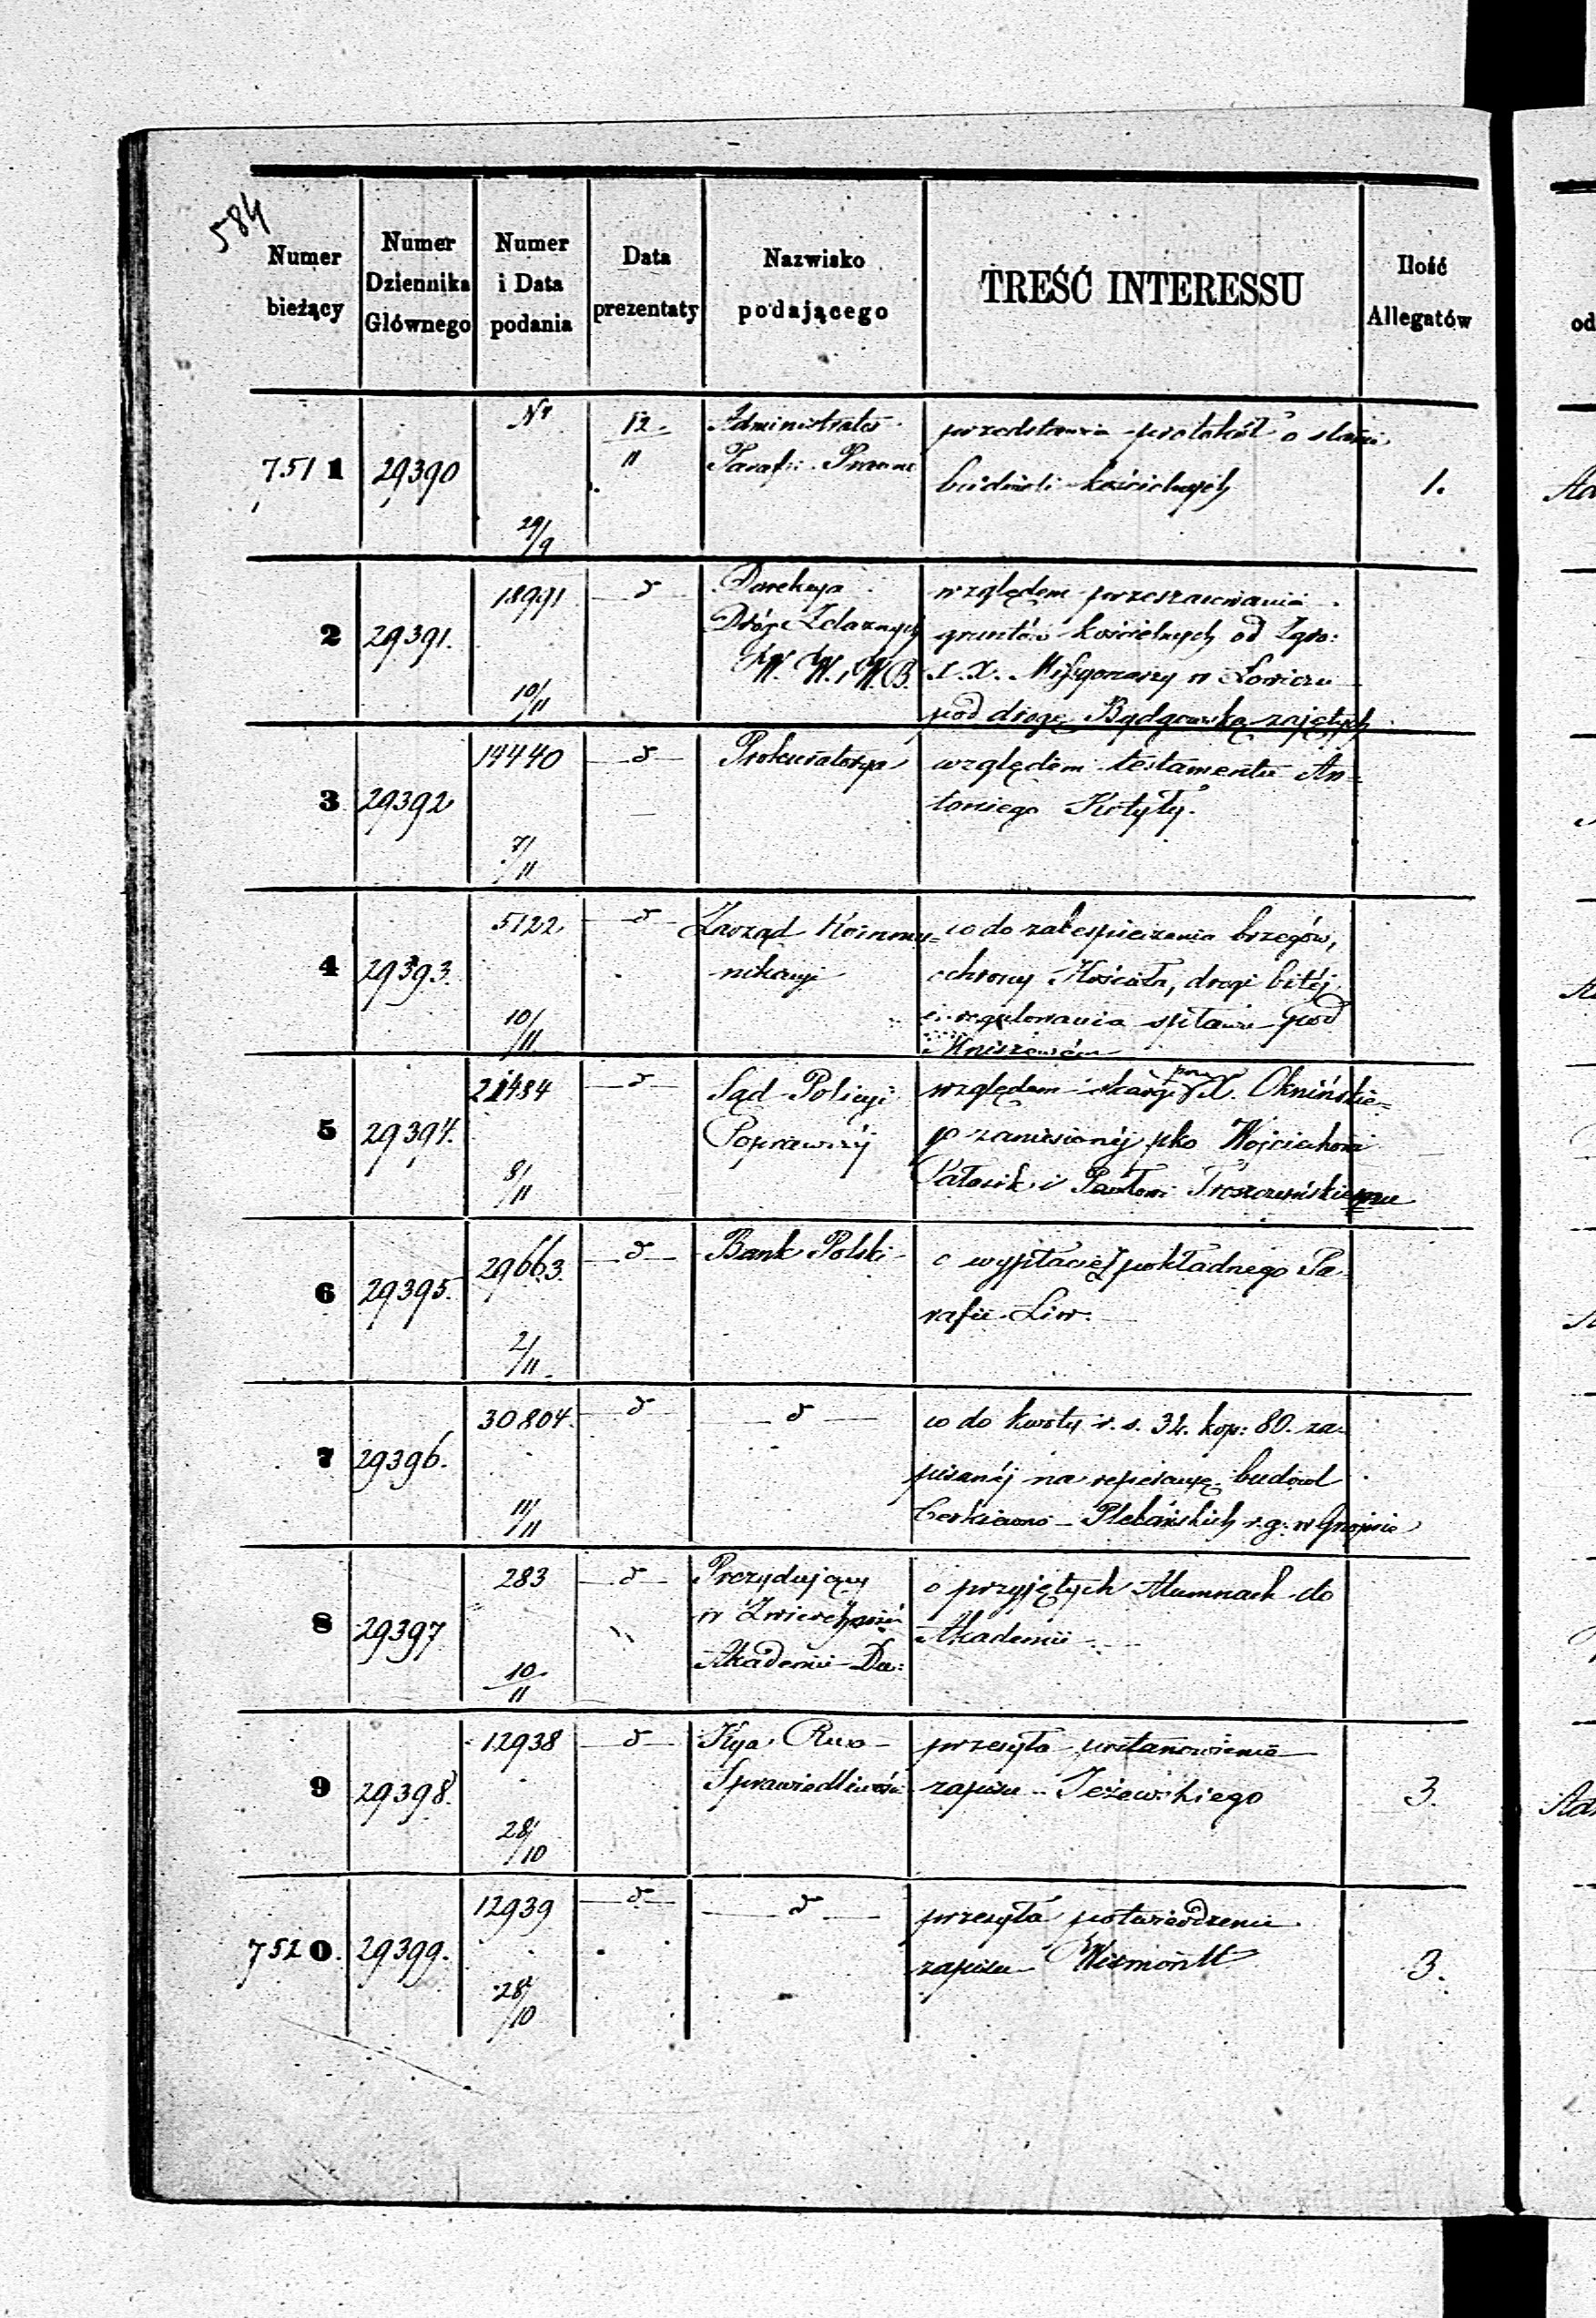 584
Numer bieżący
Numer Dziennika Głównego
Numer i Data podania
Data prezentaty
Nazwisko podającego
TREŚĆ INTERESSU
Ilość Allegatów
7511
29390
Nr
29/9
12/11
Administrator
Parafii
przedstawia protokół o stanie
budowli kościelnych
1.
2
29391.
18991
10/11
d
Dyrekcya
Dróg Żelaznych
W. W. i W. B.
względem poszacowania
gruntów kościelnych od Zgro:
X. X. Missyonarzy w Łowiczu
pod drogę Bydgowską zajętych
3
29392
14440
7/11
d
Prokuratorya
względem testamentu An=
toniego Kotyły.
4
29393.
5122
10/11
d
Zarząd Kommu=
nikacyi
co do zabespieczenia brzegów,
ochrony Kościoła, drogi bitéj
i regulowania spławu pod
Mniszewem
5
29394.
21484
8/11
d
Sąd Policyi
Poprawczéj
względem skargi przez X. Oknińskie=
go zaniesionéj pko Wojciechowi
i Pawłowi Troszczyńskiemu
6
29395.
29663.
2/11
d
Bank Polski
o wypłacie pokładnego Pa
rafii Liw.
7
29396.
30804.
11/11
d
d
co do kwoty r. s. 32. kop: 80. za=
pisanéj na reperacyę budowl
Cerkiewno-Plebańskich r. g. w Gnojnie
8
29397
283
10/11
d
Prezydujący
w Zwierzchności
Akademii Du:
o przyjętych Alumnach do
Akademii
9
29398.
12938
28/10
d
Kya Rzo
Sprawiedliwości
przesyła postanowienie
zapisu Jeżewskiego
3.
7520.
29399.
12939
28/10
d
d
przesyła potwierdzenie
zapisu Wismontt
3.